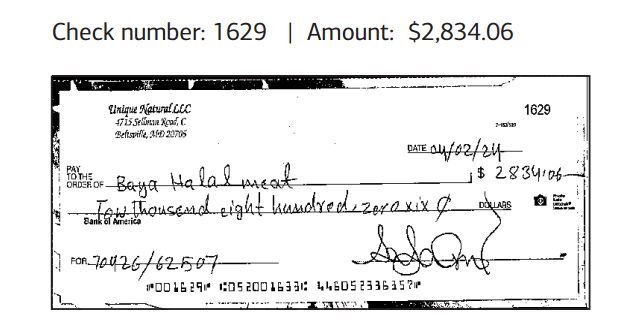 Check number: 1629 | Amount: $2,834.06
Unique Natural LLC
4715 Sellman Road, C
Beltsville, MD 20705
1629
DATE 04/02/24
PAY
TO THE
ORDER OF Baya Halal meat $ 2834.06
Tow thousend eight hundred, zero xix ¢ DOLLARS
Bank of America
FOR 70426/62507
⑈001629⑈ ⑆052001633⑆ 446052336357⑈